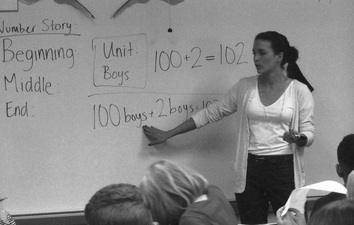 Number Story:
Beginning:
Middle:
End:
Unit:
Boys
100+2=102
100 boys + 2 boys = 102